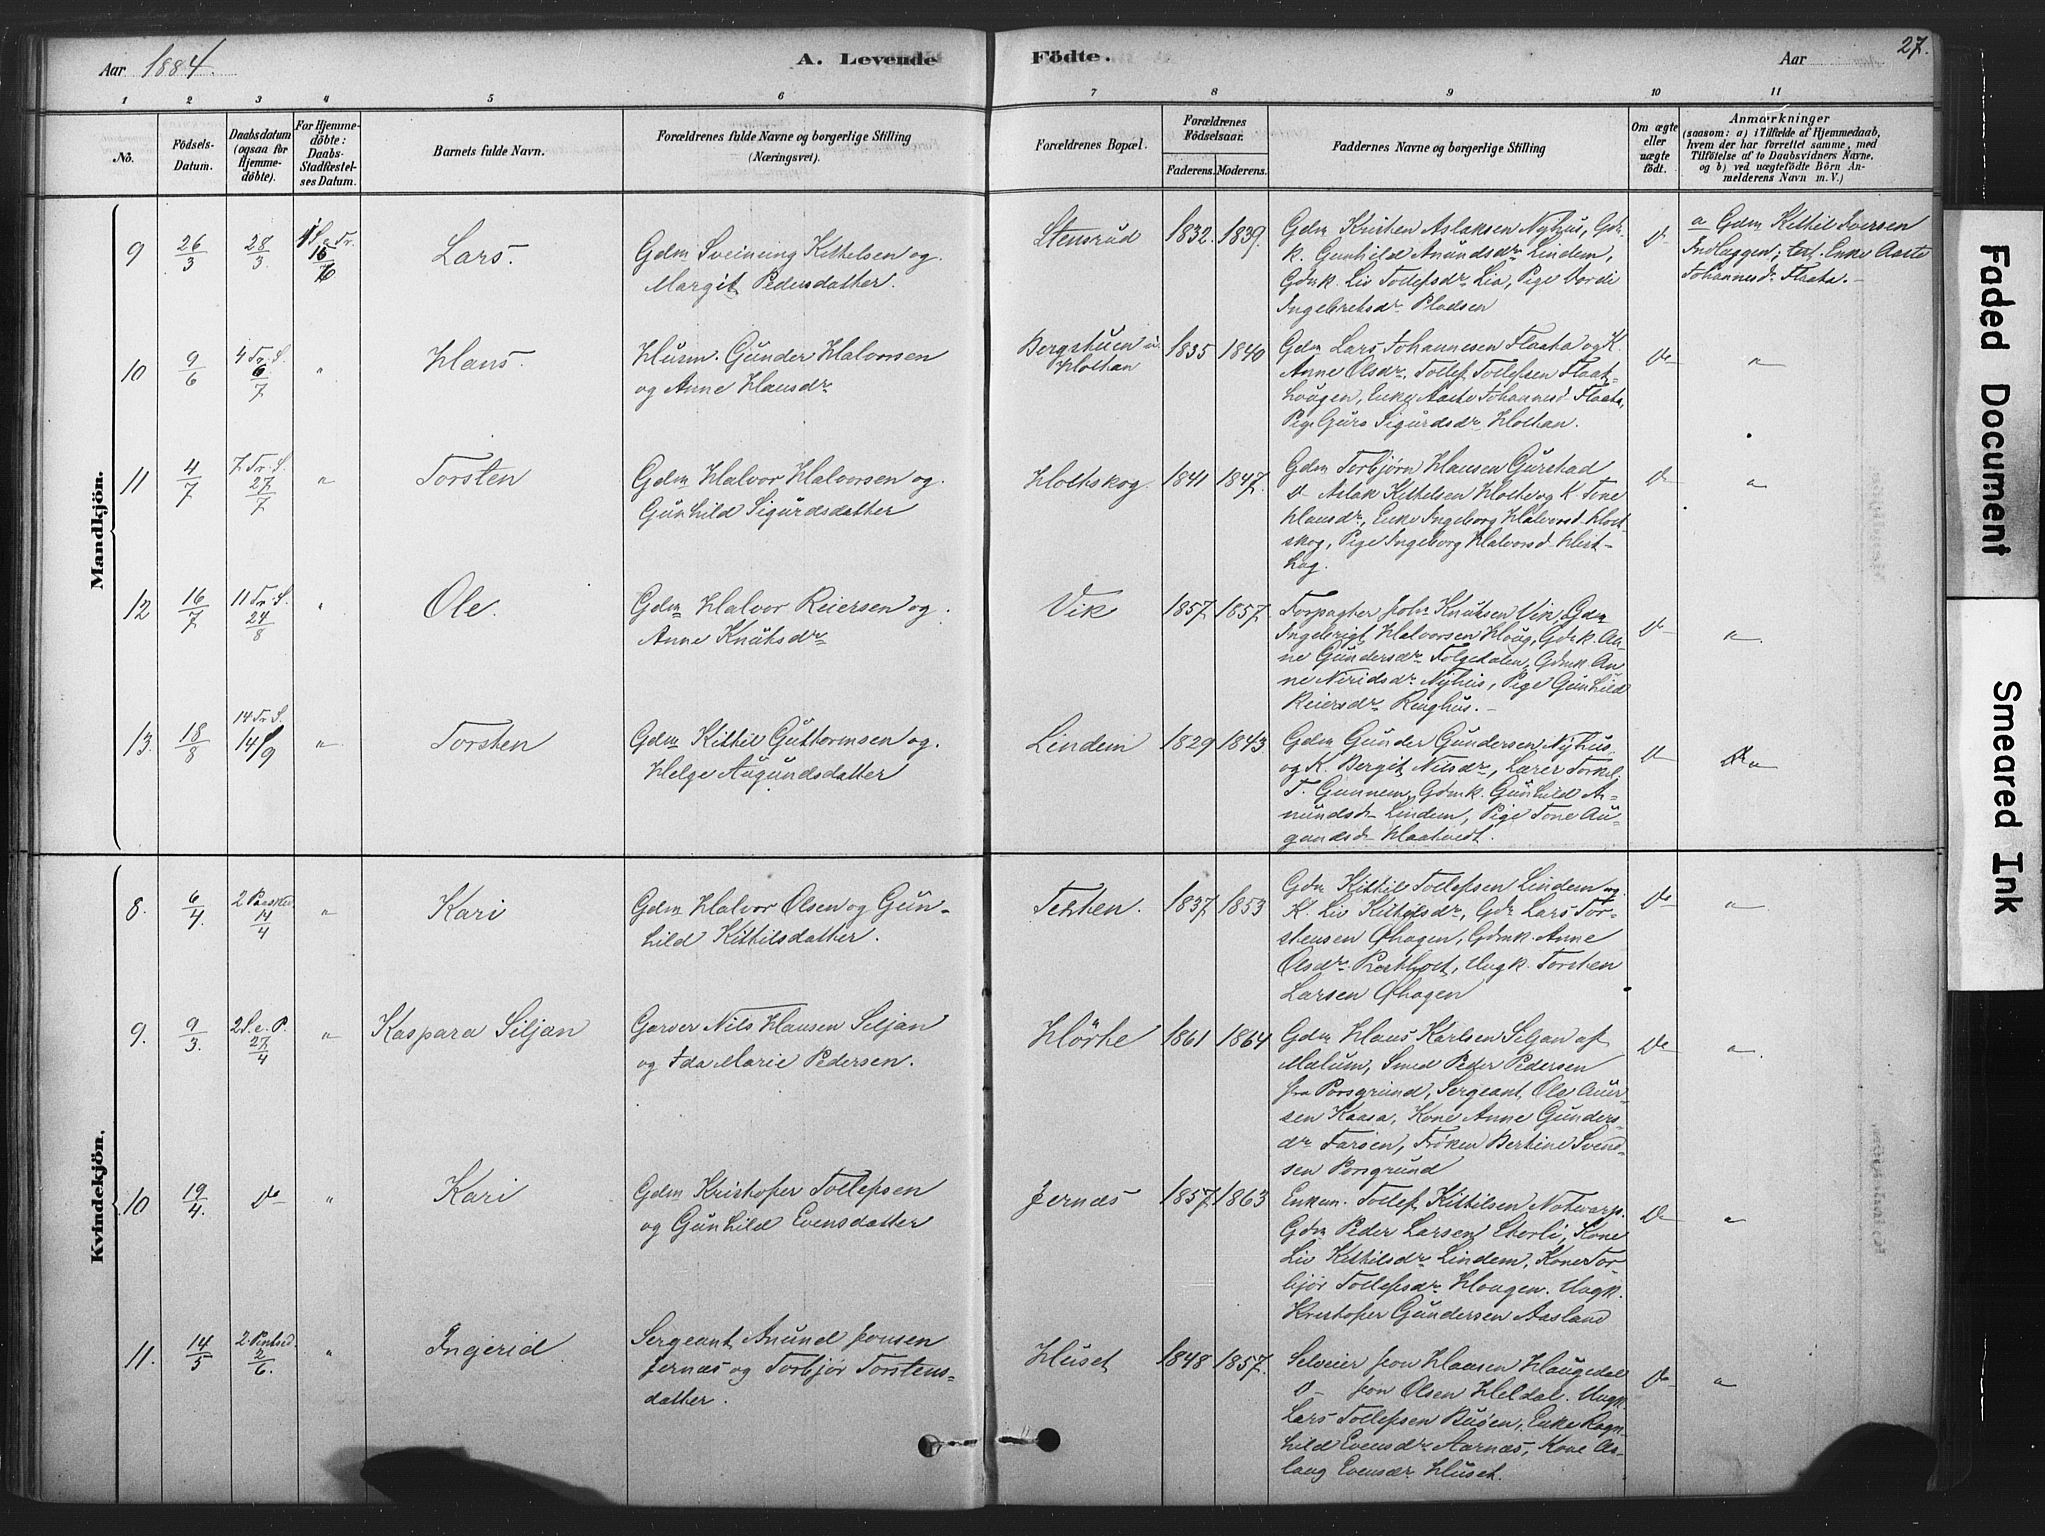 Aar 1884.
A. Levende Födte.
Aar
27.
1 2 3 4 5 6 7 8 9 10 11
No.
Födsels-
Datum.
Daabsdatum
(ogsaa for
Hjemme-
döbte).
For Hjemme-
döbte:
Daabs-
Stadfæstel-
ses Datum.
Barnets fulde Navn.
Forældrenes fulde Navne og borgerlige Stilling
(Næringsvei).
Forældrenes Bopæl.
Forældrenes
Födselsaar.
Faderens. Moderens.
Faddernes Navne og borgerlige Stilling
Om ægte
eller
uægte
födt.
Anmærkninger
(saasom: a) i Tilfælde af Hjemmedaab,
hvem der har forrettet samme, med
Tilföielse af to Daabsvidners Navne,
og b) ved uægtefödte Börn An-
melderens Navn m. V.)
Mandkjön.
9
26/3
28/3
Lars.
Gdm Sveinung Kittelsen og
Margit Pedersdatter.
Stensrud
1832. 1839.
Gdm Kristen Aslaksen Nyhus, Gdm
k. Gunhild Anundsdr Lindem,
Gdmk. Liv Tollefsdr Lia, Pige Vordi
Ingebretsdr Pladsen
Do
a Gdm Kittil Iversen
Indlæggen; test. Enke Aaste
Johannesdr Flaata.-
10
9/6
4 Tr. S.
6/7
"
Hans.
Husm. Gunder Halvorsen
og Anne Hansdr
Bergstuen u.
Holtan
1835 1840
Gdm Lars Johannesen Flaata og K.
Anne Olsdr. Tollef Tollefsen Flaat-
haugen, Enke Aaste Johannesd. Flaata,
Pige Guro Sigurdsdr Holtan.
Do
"
11
4/7
7. Tr. S.
27/7
"
Torsten
Gdm Halvor Halvorsen og
Gunhild Sigurdsdatter
Holtskog
1841 1847.
Gdm Torbjørn Hansen Gurstad
Do Aslak Kittelsen Holte og K. Tone
Hansdr, Enke Ingeborg Halvorsd Holt-
skog, Pige Ingeborg Halvorsd Holt-
skog.
Do
"
12
16/7
11 Tr. S.
24/8
"
Ole.
Gdm Halvor Reiersen og
Anne Knutsdr
Vik
1857. 1857.
Forpagter John Knutsen Vik, Gdm
Ingebrigt Halvorsen Haug, Gdmk. An-
ne Gundersdr Folgedalen, Gdmk. An-
ne Neridsdr Nyhus, Pige Gunhild
Reiersdr Ringhus.-
Do
"
13.
18/8
14 Tr. S.
14/9
"
Torsten
Gdm Kittil Guttormsen og
Helge Augundsdatter
Lindem
1829 1843.
Gdm Gunder Gundersen Nyhus
og K. Bergit Nilsdr, Lærer Torkel
T. Gunnem, Gdmk. Gunhild A-
nundsdr Lindem, Pige Tone Au-
gundsdr Haatvedt.
Do
"
Kvindekjön.
8.
6/4
2 Paaskd
14/4
"
Kari
Gdm Halvor Olsen og Gun-
hild Kittilsdatter.
Teksten.
1837. 1853
Gdm Kittil Tollefsen Lindem og
K. Liv Kittilsdr, Gdm Lars Tor-
stensen Øhagen, Gdmk. Anne
Olsdr Præstholt, Ungk. Torsten
Larsen Øhagen
Do
"
9.
9/3.
2 S. e. P.
27/4
"
Kaspara Siljan
Garver Nils Hansen Siljan
og Ida Marie Pedersen.
Hörte
1861 1864
Gdm Hans Karlsen Siljan af
Mælum, Smed Peder Pedersen
fra Porsgrund, Sergeant Ole Auen-
sen Kaasa, Kone Anne Gunders-
dr Farsen, Frøken Bertine Svend-
sen Porsgrund
Do
"
10
19/4.
Do
"
Kari
Gdm Kristofer Tollefsen
og Gunhild Evensdatter
Jernæs
1857. 1863
Enkem. Tollef Kittilsen Notvarp.
Gdm Peder Larsen Eterli, Kone
Liv Kittilsdr Lindem, Kone Tor-
bjør Tollefsdr Haugen. Ungk.
Kristofer Gundersen Aasland
Do
"
11.
14/5
2. Pintsed
2/6.
"
Ingerid
Sergeant Anund Jonsen
Jernæs og Torbjør Torstens-
datter.
Huset
1848 1857.
Selveier Jon Hansen Haugedal
Do Jon Olsen Heldal. Ungk.
Lars Tollefsen Buøen, Enke Ragn-
hild Evensdr Aarnæs, Kone As-
laug Evensdr Huset.
Do
"
Faded Document
Smeared Ink